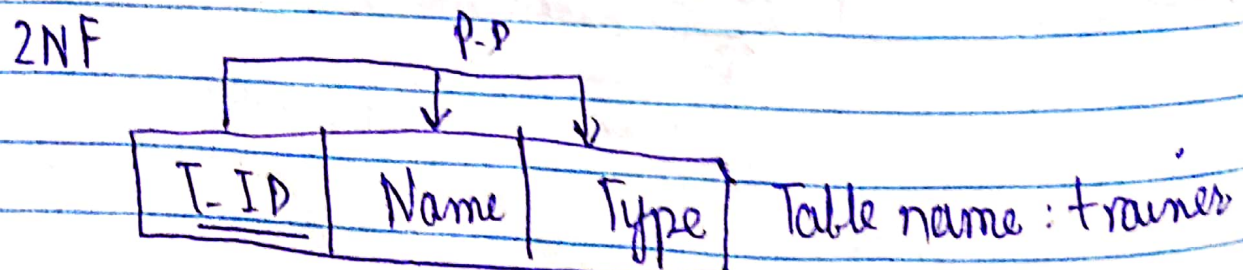 2NF
P-D
T-ID Name Type Table name : trainer